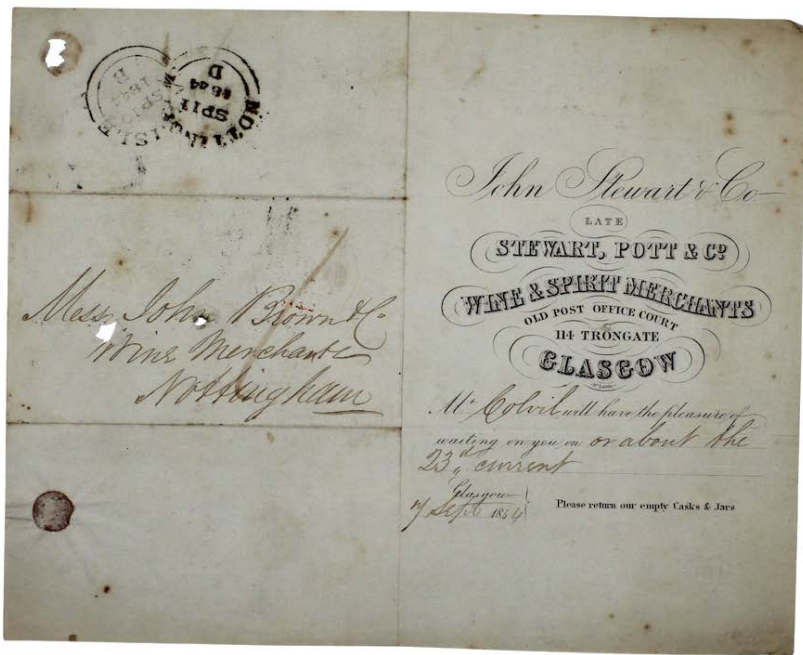 D
SP 11
1844
B
SP 10
1844
Mess John Brown & Co
Wine Merchants
Nottingham
John Stewart & Co
LATE
STEWART, POTT & Co
WINE & SPIRIT MERCHANTS
OLD POST OFFICE COURT
114 TRONGATE
GLASGOW
Mr Colvil will have the pleasure of
waiting on you on or about the
23d current
Glasgow
7 Sept 1844
Please return our empty Casks & Jars